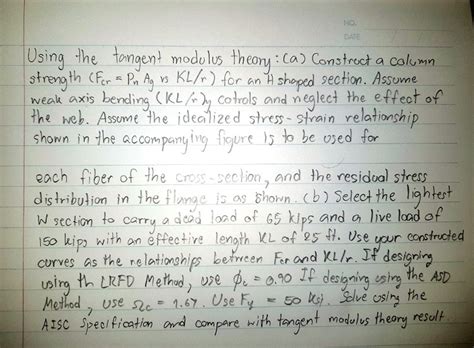 NO.
DATE
Using the tangent modulus theory: (a) Construct a column
strength (Fcr = Pn Ag vs KL/r) for an H shaped section. Assume
weak axis bending (KL/r)y cotrols and neglect the effect of
the web. Assume the idealized stress-strain relationship
shown in the accompanying figure is to be used for
each fiber of the cross-section, and the residual stress
distribution in the flange is as shown. (b) Select the lightest
W section to carry a dead load of 65 kips and a live load of
150 kips with an effective length KL of 25 ft. Use your constructed
curves as the relationships between Fcr and KL/r. If designing
using th LRFD Method, use φc = 0.90 If designing using the ASD
Method, use Ωc = 1.67. Use Fy = 50 ksi. Solve using the
AISC Specification and compare with tangent modulus theory result.